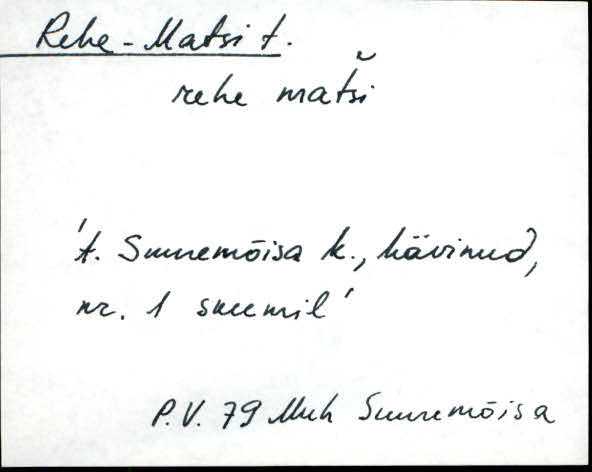 Rehe-Matsi t.
rehe matši
't. Suuremõisa k., hävinud,
nr. 1 skeemil'
P.V. 79 Muh Suuremõisa